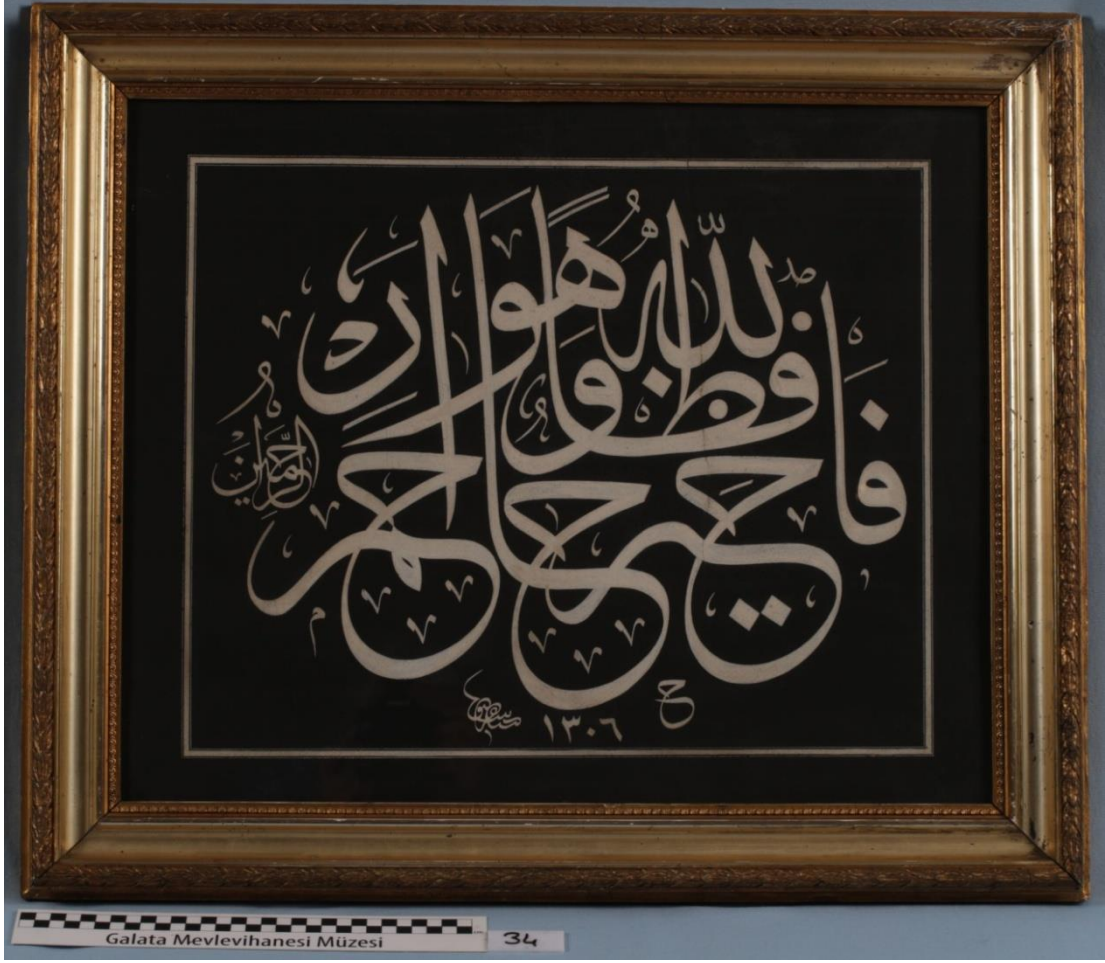 فالله خير حافظا وهو ارحم الراحمين
١٣٠٦
Galata Mevlevihanesi Müzesi 34